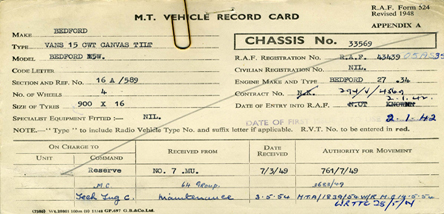 R.A.F. Form 524
Revised 1948
M.T. VEHICLE RECORD CARD
APPENDIX A
MAKE BEDFORD
TYPE VANS 15 CWT CANVAS TILT
CHASSIS No. 33569
MODEL BEDFORD
R.A.F. REGISTRATION No. R.A.F. 43439
CODE LETTER
CIVILIAN REGISTRATION No. NIL.
SECTION AND REF. No. 16 A/589
ENGINE MAKE AND TYPE BEDFORD 27.34
NO. OF WHEELS 4
CONTRACT No.
SIZE OF TYRES 900 X 16
2.1.42.
DATE OF ENTRY INTO R.A.F. NOT KNOWN
SPECIALIST EQUIPMENT FITTED :— NIL.
DATE OF FIRST
2.1.42
NOTE.—" Type " to include Radio Vehicle Type No. and suffix letter if applicable. R.V.T. No. to be entered in red
ON CHARGE TO
RECEIVED FROM
DATE RECEIVED
AUTHORITY FOR MOVEMENT
UNIT
COMMAND
Reserve NO. 7 .MU. 7/3/49 761/7/49
M.C. 64 Group.
Maintenance 3.5.54